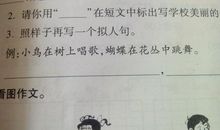 2. 请你用“______”在短文中标出写学校美丽的
3. 照样子再写一个拟人句。
例:小鸟在树上唱歌,蝴蝶在花丛中跳舞。
看图作文。